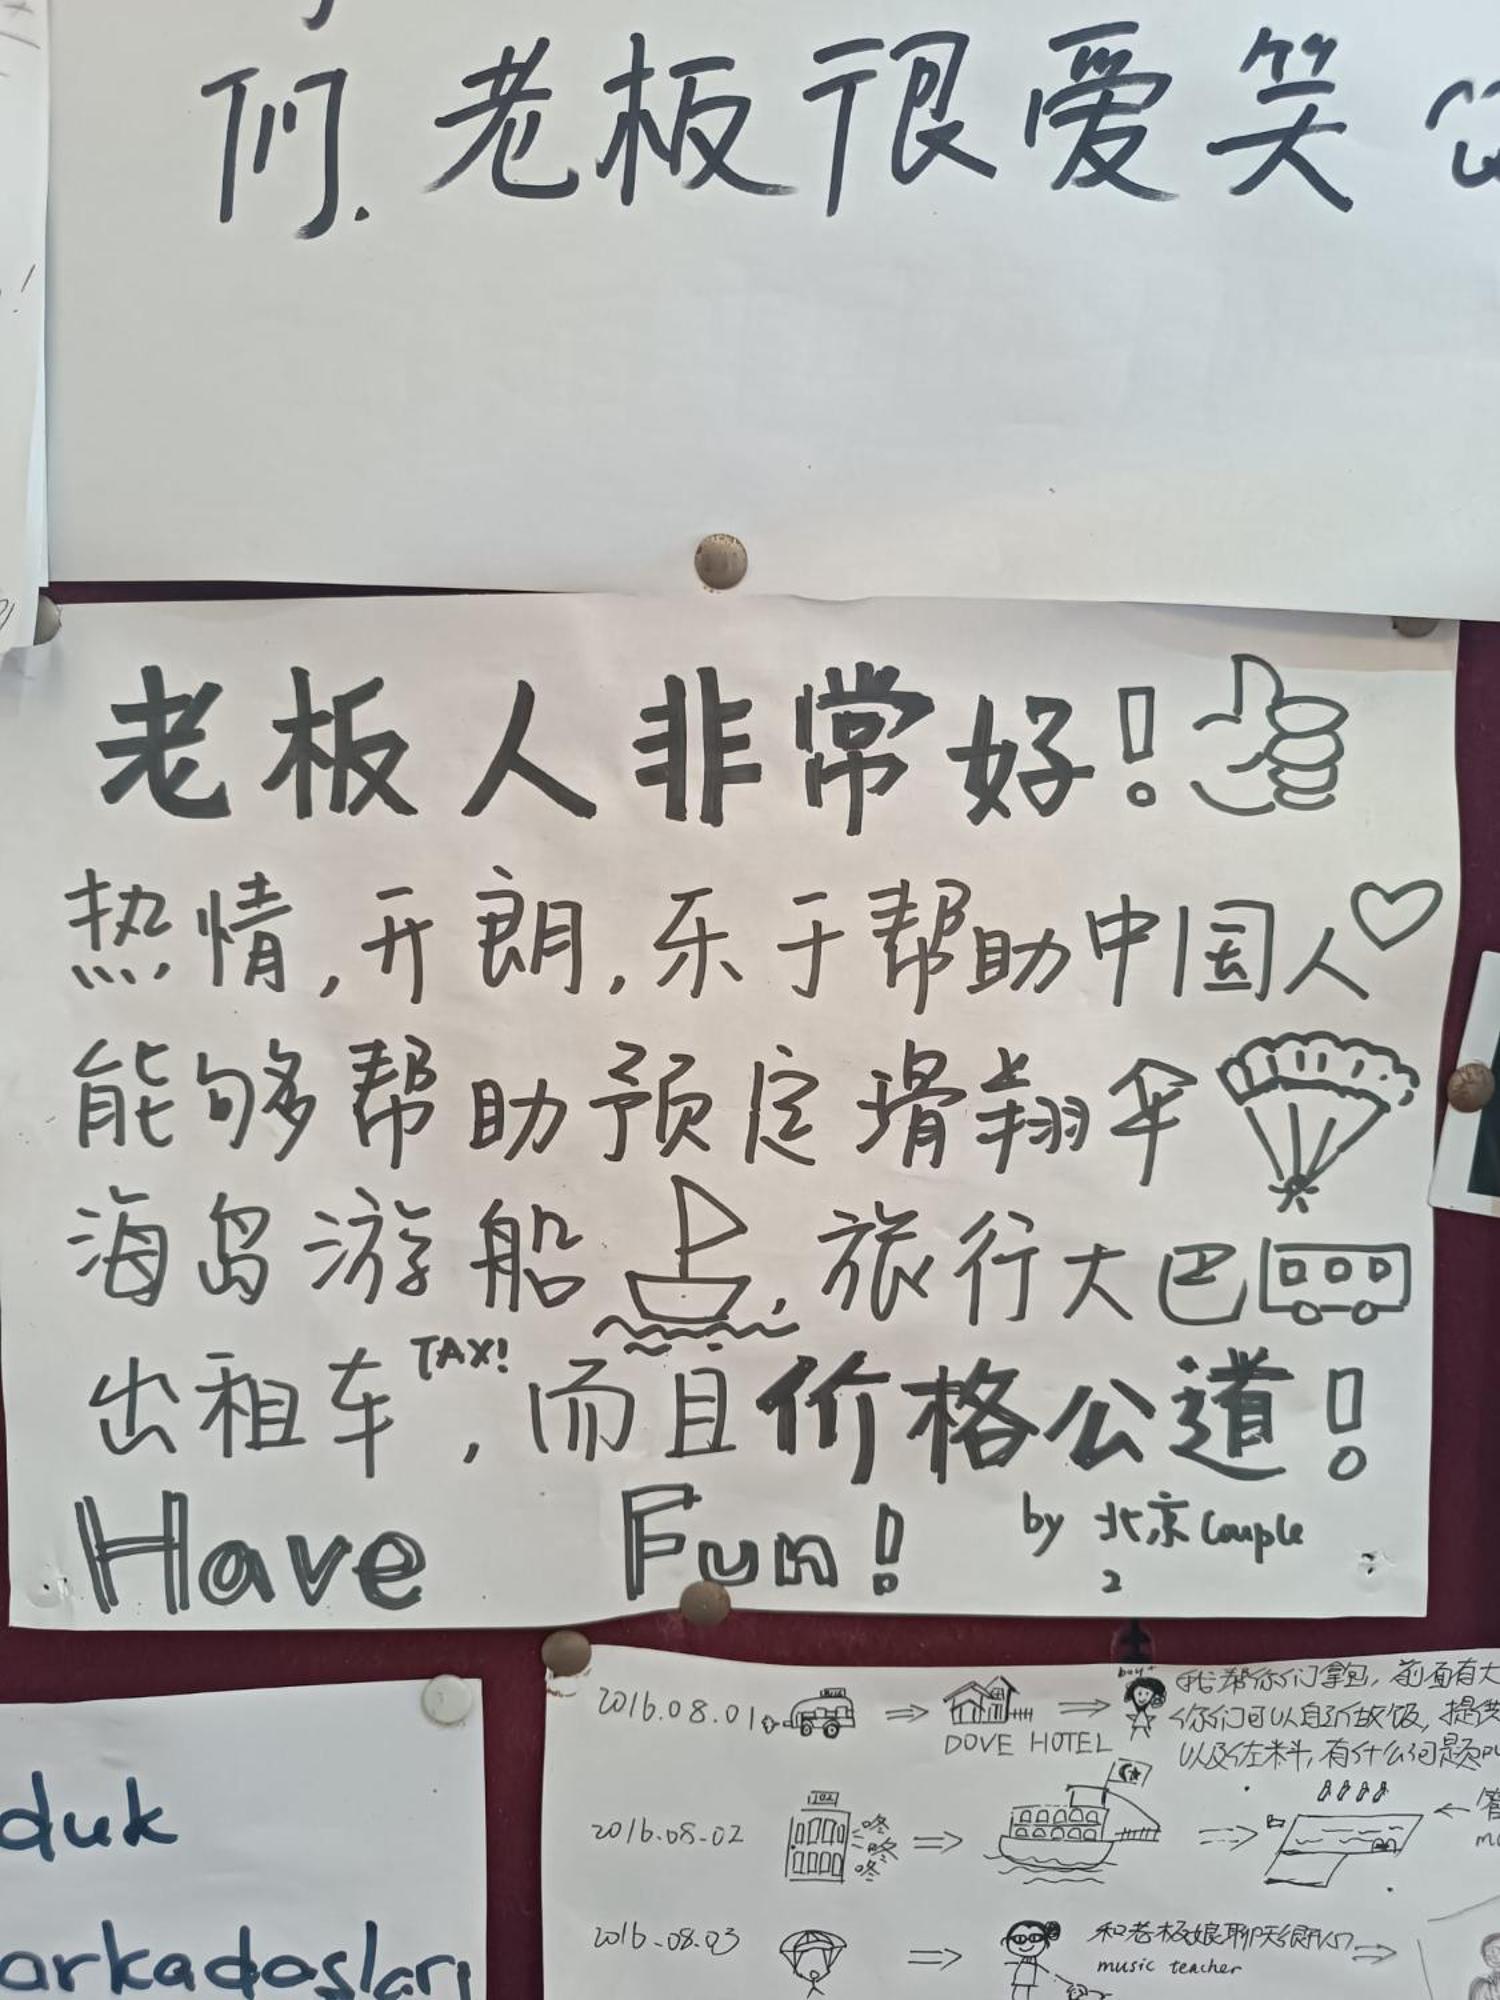 们. 老板很爱笑
老板人非常好!
热情, 开朗, 乐于帮助中国人
能够帮助预定滑翔伞
海岛游船, 旅行大巴
出租车 TAXI, 而且价格公道!
Have Fun! by 北京 couple
2
duk
arkadaşları
2016.08.01
DOVE HOTEL
boy
我帮你们拿包, 前面有大
你们可以自己做饭, 提供
以及佐料, 有什么问题
2016.08.02
咚
咚
咚
2016.08.03
和老板娘聊天很开心
music teacher